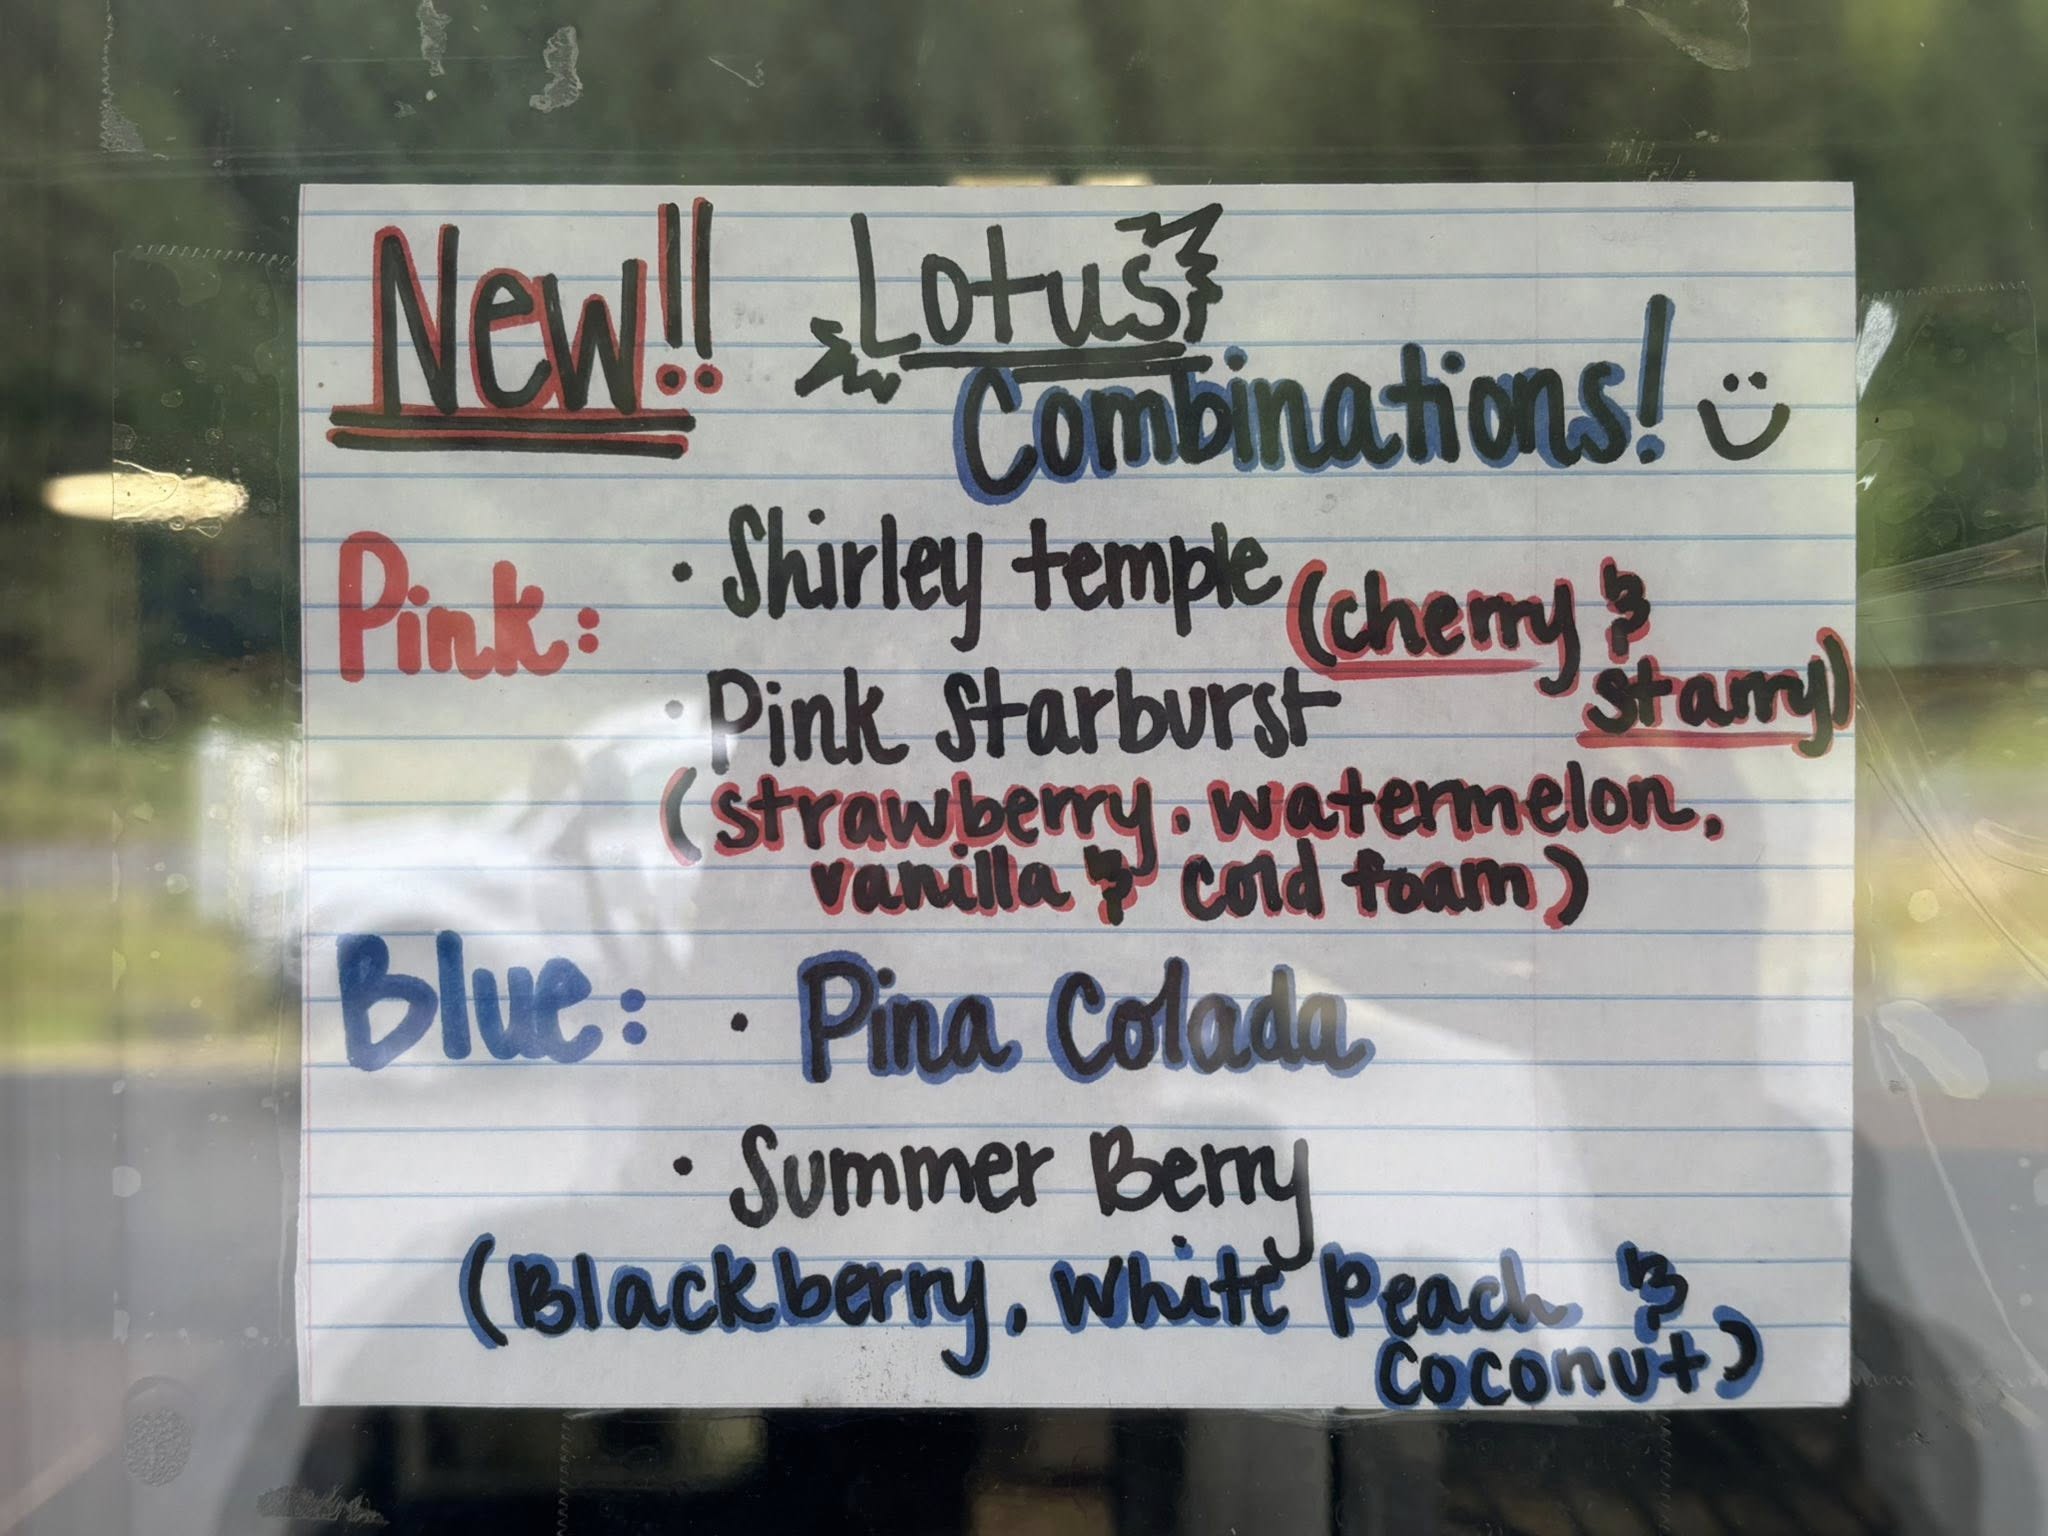 New!! Lotus
Combinations!
Pink: • Shirley temple (cherry &
starry)
• Pink starburst
(strawberry, watermelon,
vanilla & cold foam)
Blue: • Pina Colada
• Summer Berry
(Blackberry, White Peach &
coconut)